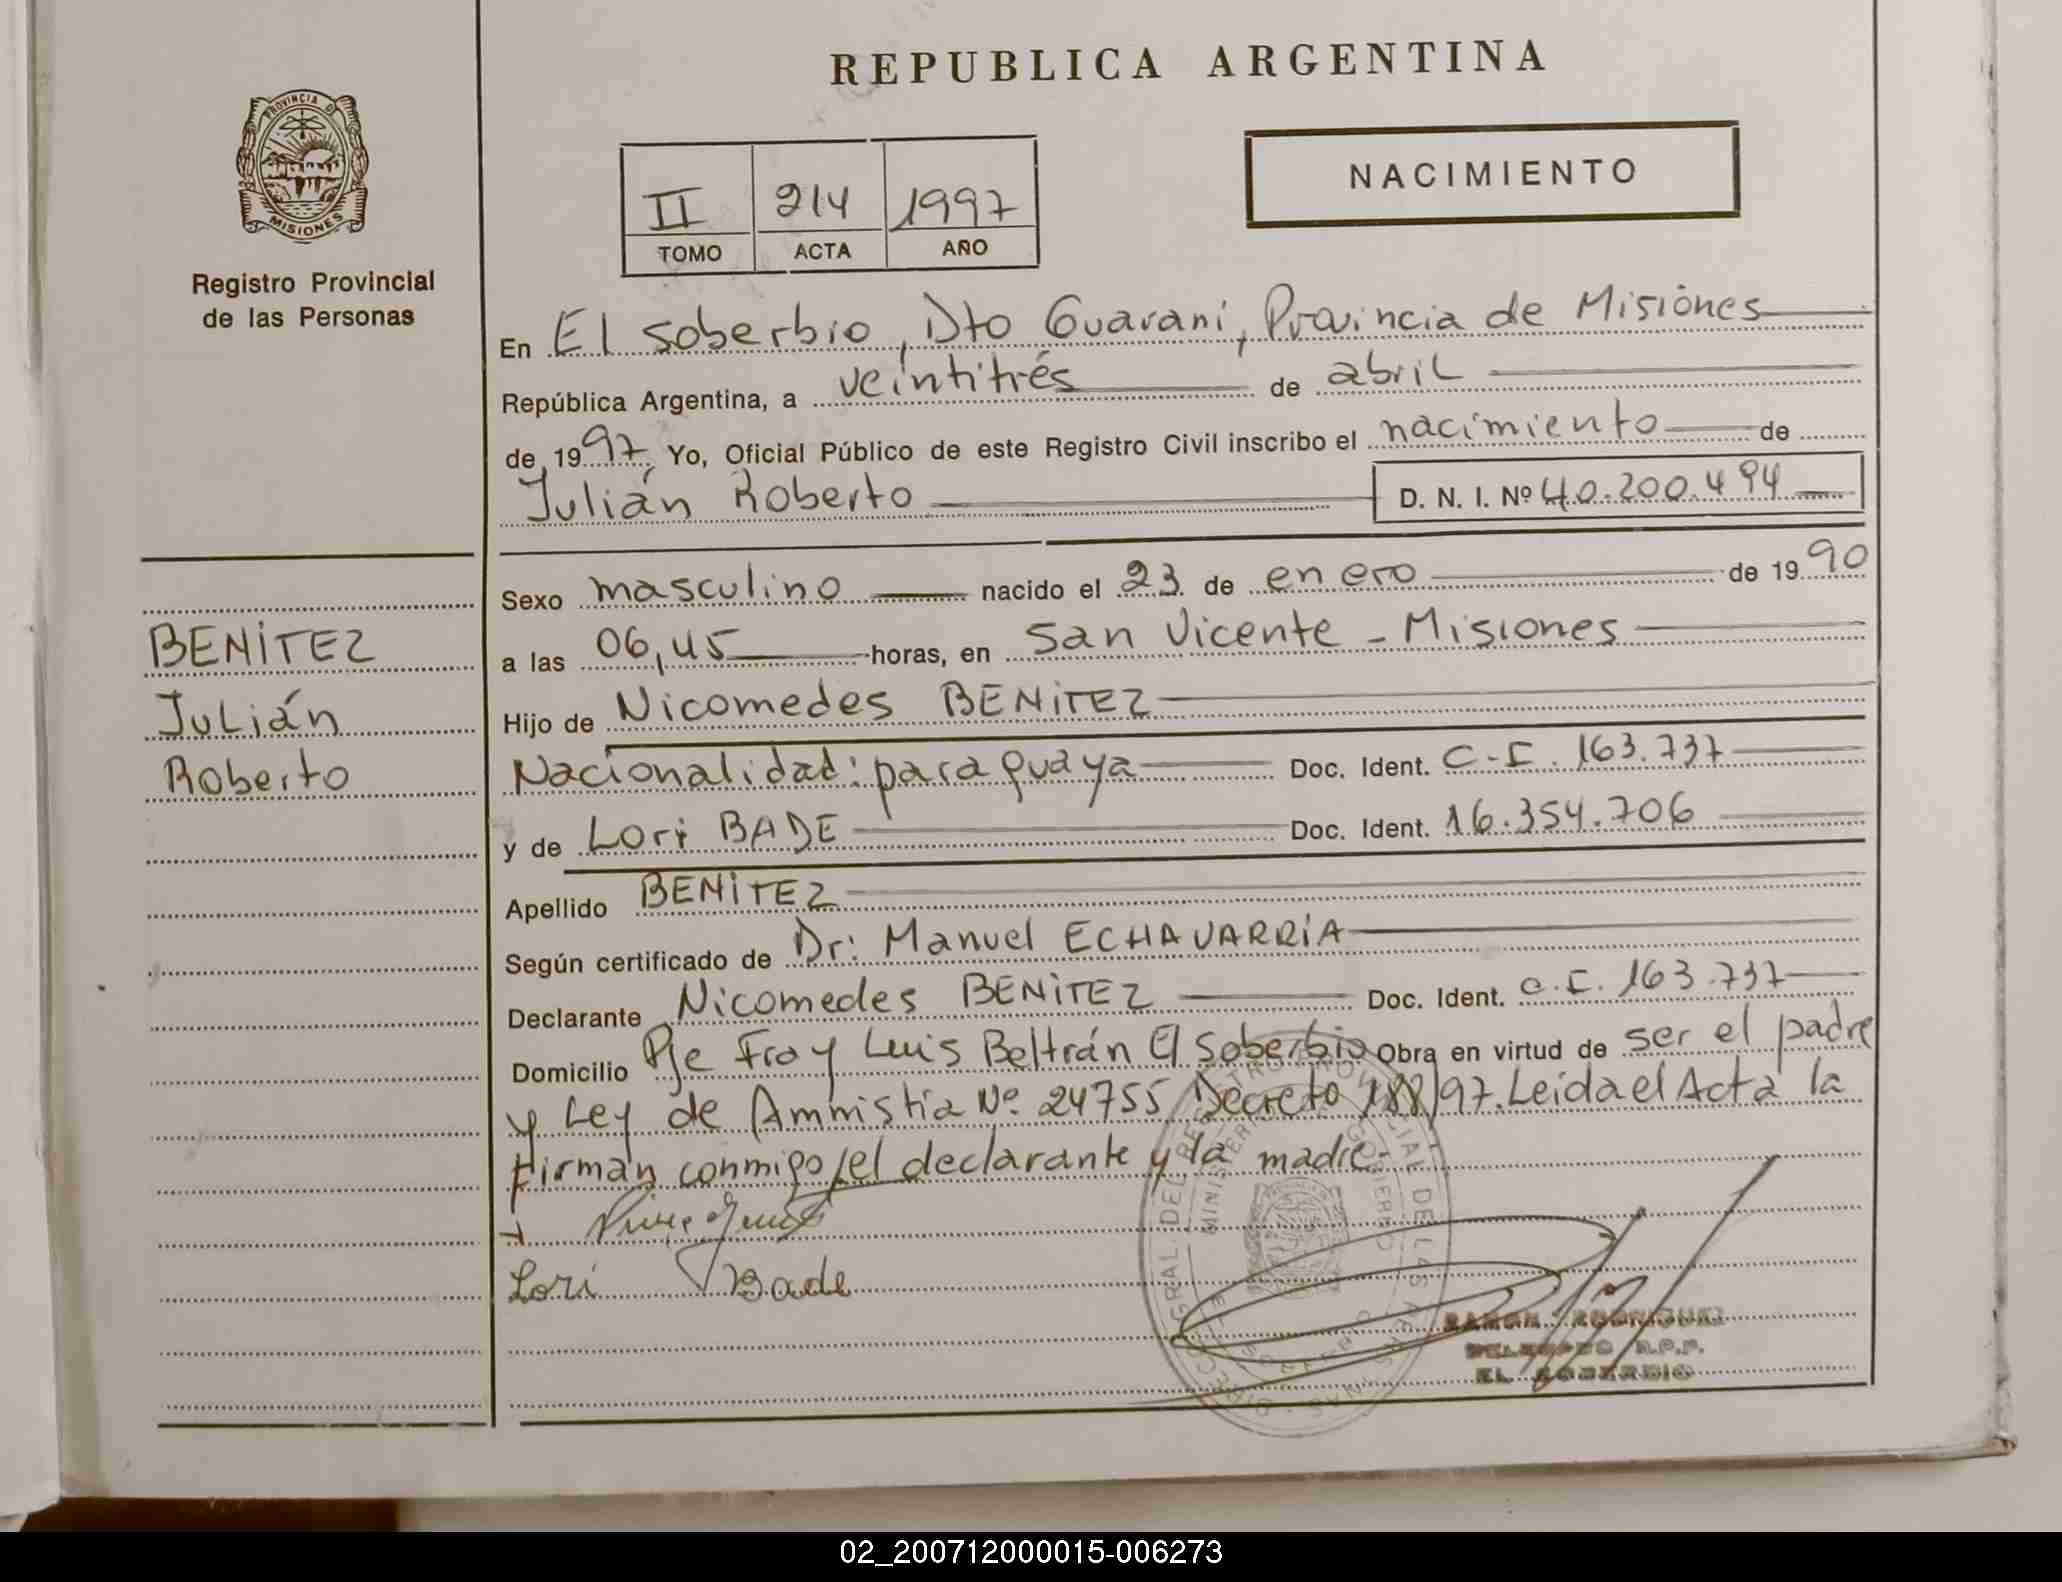 REPUBLICA ARGENTINA
PROVINCIA DE
MISIONES
Registro Provincial
de las Personas
II 214 1997
TOMO ACTA AÑO
NACIMIENTO
En El Soberbio, Dto Guaraní, Provincia de Misiones
República Argentina, a veintitrés de abril
de 1997, Yo, Oficial Público de este Registro Civil inscribo el nacimiento de
Julián Roberto D. N. I. Nº 40.200.494
Sexo masculino nacido el 23 de enero de 1990
a las 06,45 horas, en San Vicente - Misiones
Hijo de Nicomedes BENÍTEZ
Nacionalidad: paraguaya Doc. Ident. C.I. 163.737
y de Lori BADE Doc. Ident. 16.354.706
Apellido BENÍTEZ
Según certificado de Dr: Manuel ECHAVARRÍA
Declarante Nicomedes BENÍTEZ Doc. Ident. C.I. 163.737
Domicilio Pje Fray Luis Beltrán El Soberbio Obra en virtud de ser el padre
y Ley de Amnistia Nº 24755 Decreto 188/97. Leida el Acta la
firman conmigo, el declarante y la madre.
Lori Bade
BENÍTEZ
Julián
Roberto
RAMON RODRIGUEZ
DELEGADO R.P.P.
EL SOBERBIO
02_200712000015-006273